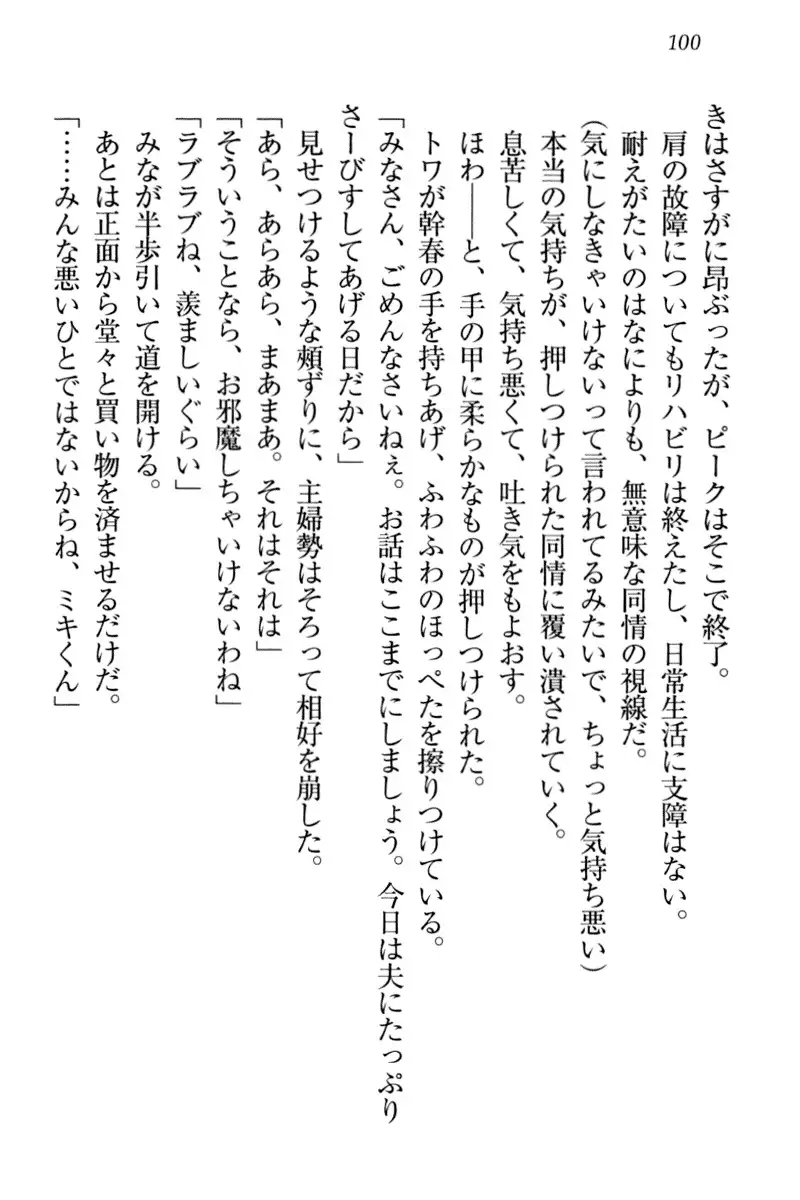 100
きはさすがに昂ぶったが、ピークはそこで終了。
肩の故障についてもリハビリは終えたし、日常生活に支障はない。
耐えがたいのはなによりも、無意味な同情の視線だ。
(気にしなきゃいけないって言われてるみたいで、ちょっと気持ち悪い)
本当の気持ちが、押しつけられた同情に覆い潰されていく。
息苦しくて、気持ち悪くて、吐き気をもよおす。
ほわ――と、手の甲に柔らかなものが押しつけられた。
トワが幹春の手を持ちあげ、ふわふわのほっぺたを擦りつけている。
「みなさん、ごめんなさいねぇ。お話はここまでにしましょう。今日は夫にたっぷり
さーびすしてあげる日だから」
見せつけるような頰ずりに、主婦勢はそろって相好を崩した。
「あら、あらあら、まあまあ。それはそれは」
「そういうことなら、お邪魔しちゃいけないわね」
「ラブラブね、羨ましいぐらい」
みなが半歩引いて道を開ける。
あとは正面から堂々と買い物を済ませるだけだ。
「……みんな悪いひとではないからね、ミキくん」